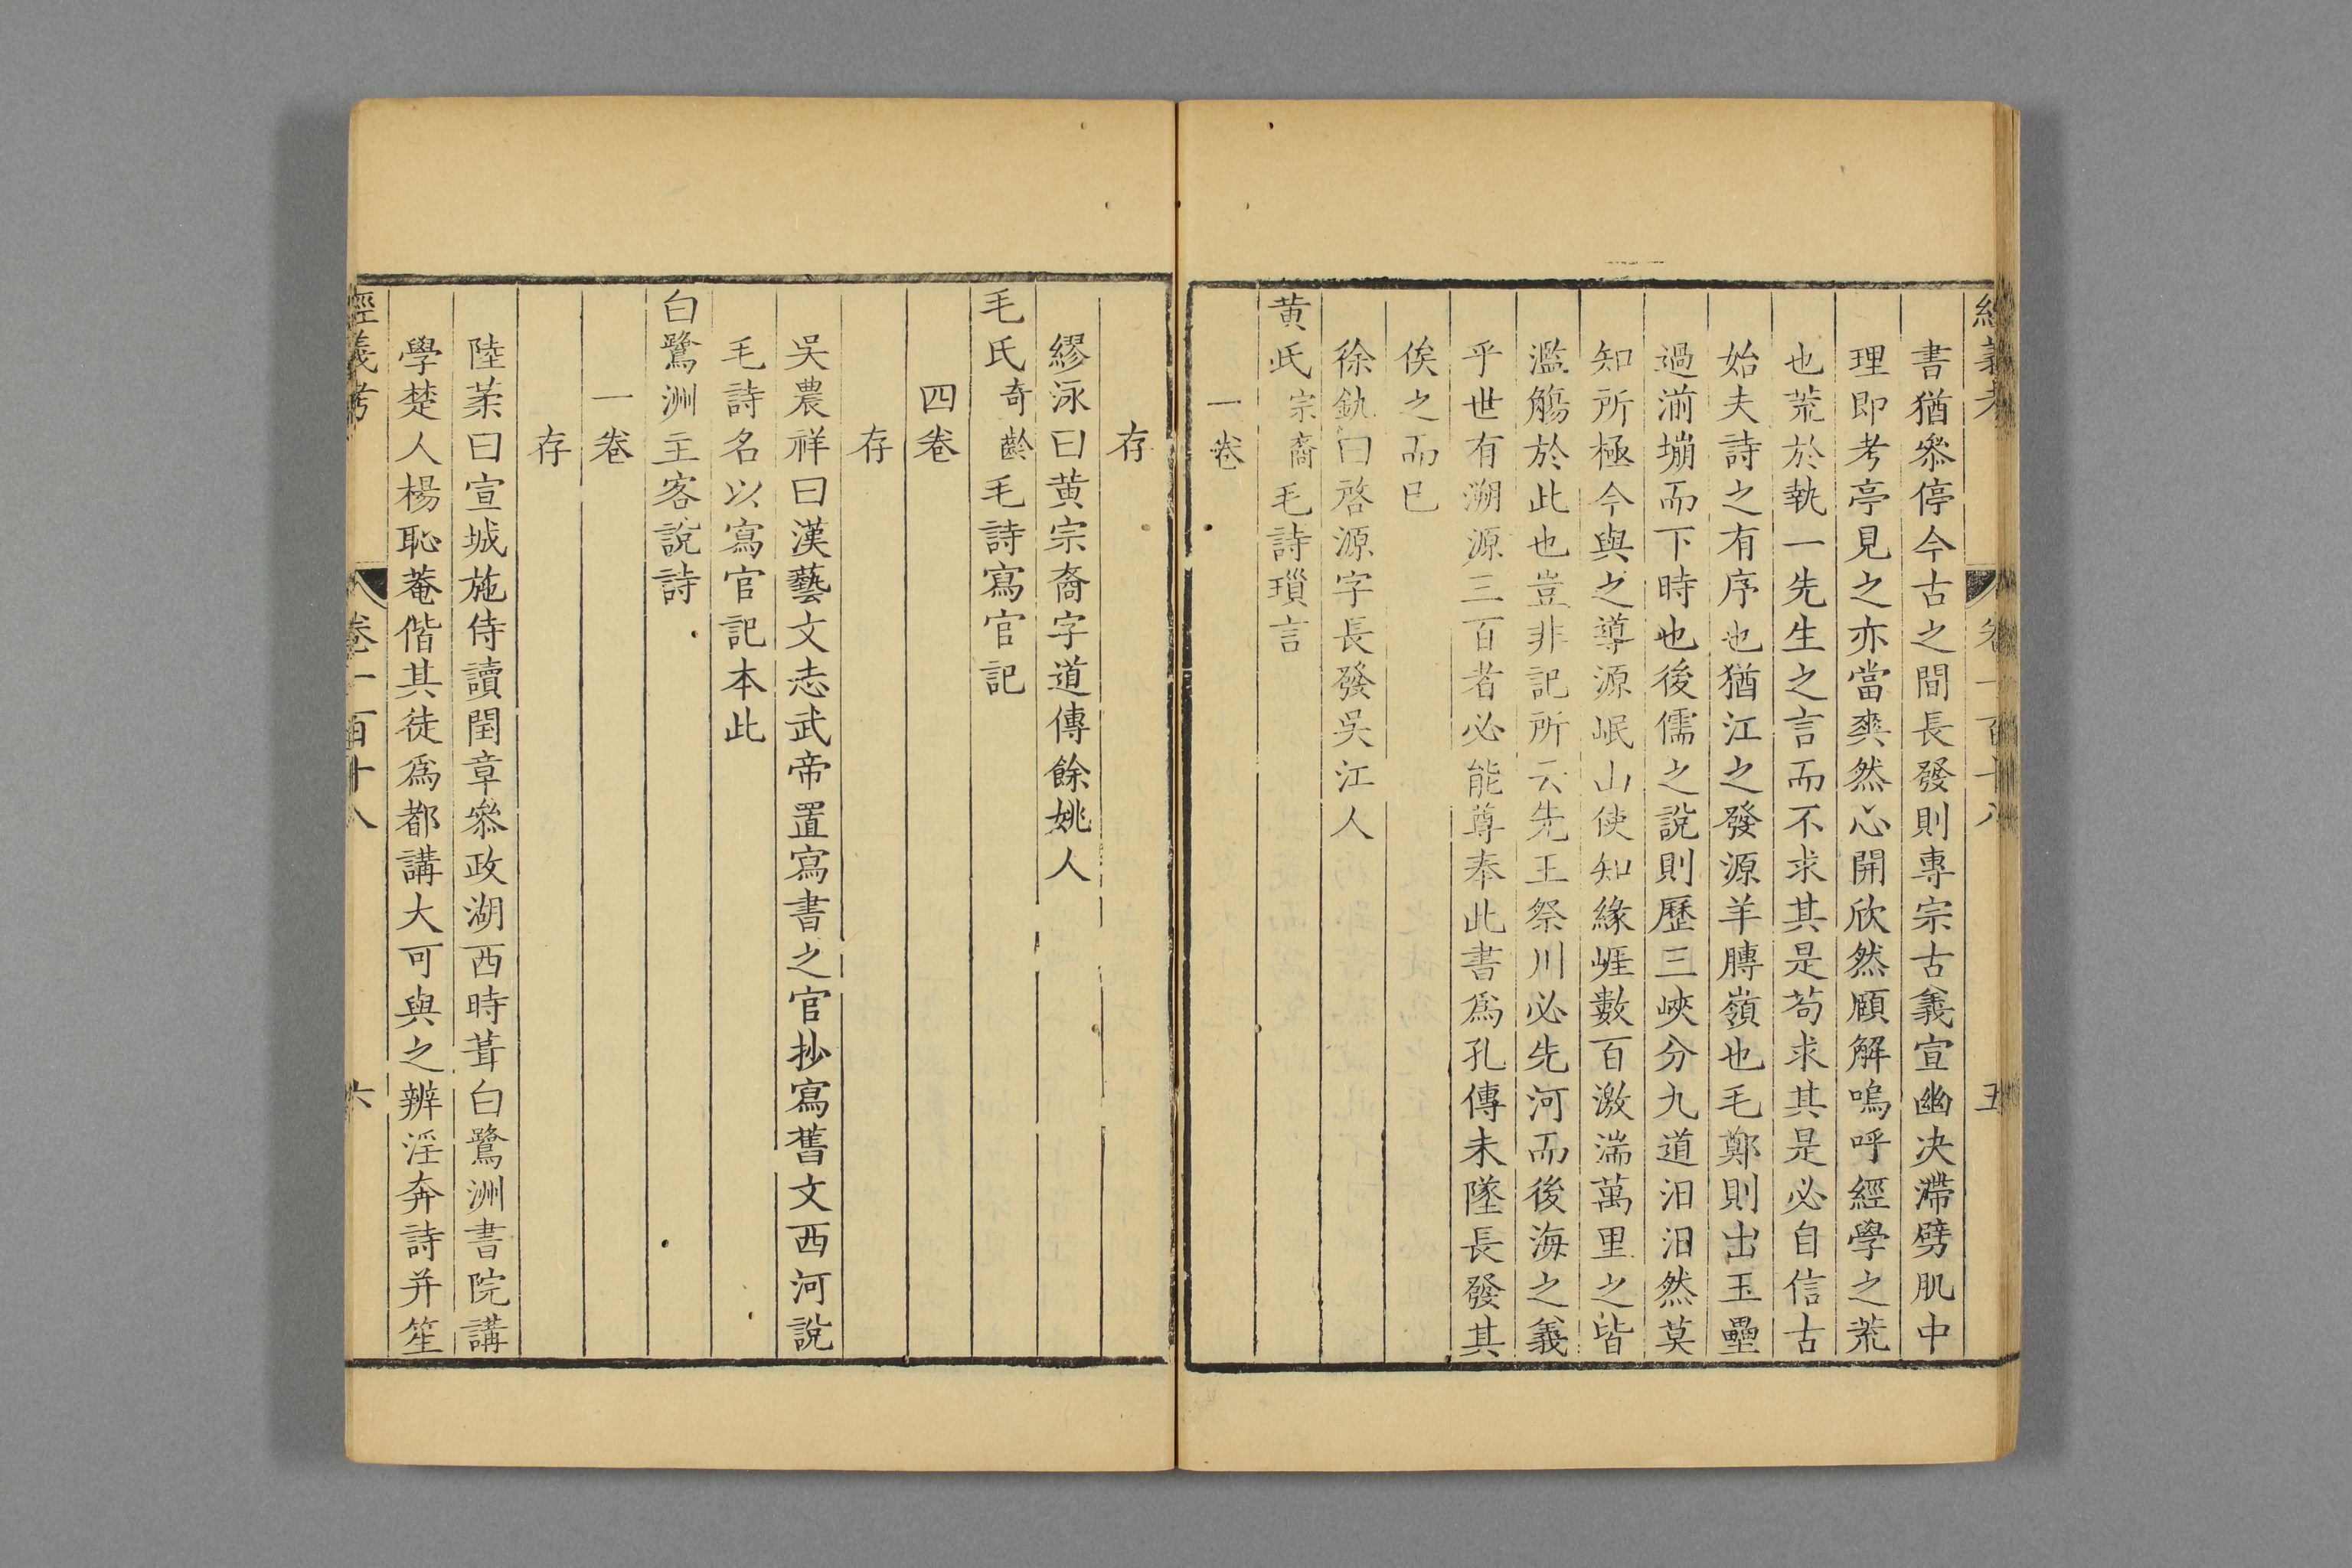 經義考 卷一百十八 五
書猶叅停今古之間長發則專宗古義宣幽决滯劈肌中
理即考亭見之亦當爽然心開欣然頤解嗚呼經學之荒
也荒於執一先生之言而不求其是苟求其是必自信古
始夫詩之有序也猶江之發源羊膊嶺也毛鄭則出玉壘
過湔堋而下時也後儒之說則歷三峽分九道汨汨然莫
知所極今與之導源岷山使知緣崕數百激湍萬里之皆
濫觴於此也豈非記所云先王祭川必先河而後海之義
乎世有溯源三百者必能尊奉此書爲孔傳未墜長發其
俟之而已
徐釚曰啓源字長發吳江人
黄氏宗裔毛詩瑣言
一卷
存
繆泳曰黄宗裔字道傳餘姚人
毛氏奇齡毛詩寫官記
四卷
存
吳農祥曰漢藝文志武帝置寫書之官抄寫舊文西河說
毛詩名以寫官記本此
白鷺洲主客說詩
一卷
存
陸葇曰宣城施侍讀閏章叅政湖西時葺白鷺洲書院講
學楚人楊恥菴偕其徒爲都講大可與之辨淫奔詩并笙
經義考 卷一百十八 六